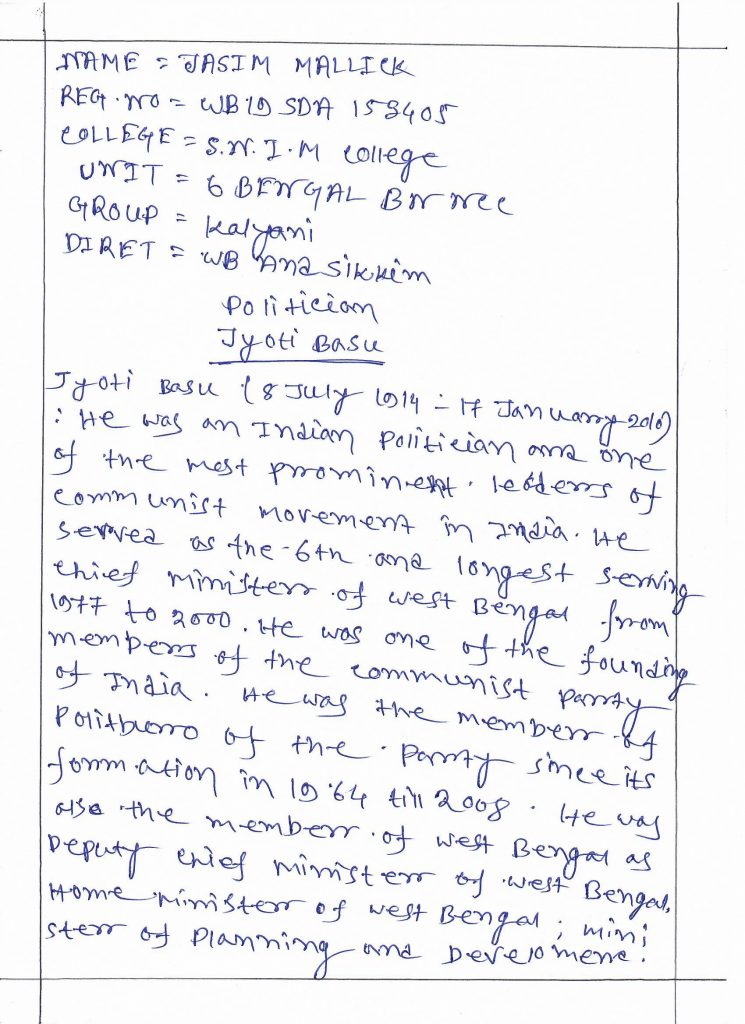 NAME = JASIM MALLICK
REG. NO = WB19 SDA 153405
COLLEGE = S.N.I.M college
UNIT = 6 BENGAL BN NCC
GROUP = Kalyani
DIRET = WB And Sikkim
Politician
Jyoti Basu
Jyoti Basu (8 July 1914 - 17 January 2010)
: He was an Indian Politician and one
of the most prominent leaders of
communist movement in India. He
served as the 6th and longest serving
chief minister of west Bengal from
1977 to 2000. He was one of the founding
members of the communist party
of India. He was the member of
Politburo of the party since its
formation in 1964 till 2008. He was
also the member of west Bengal as
Deputy chief minister of west Bengal,
Home minister of west Bengal; mini
ster of Planning and Develomene.